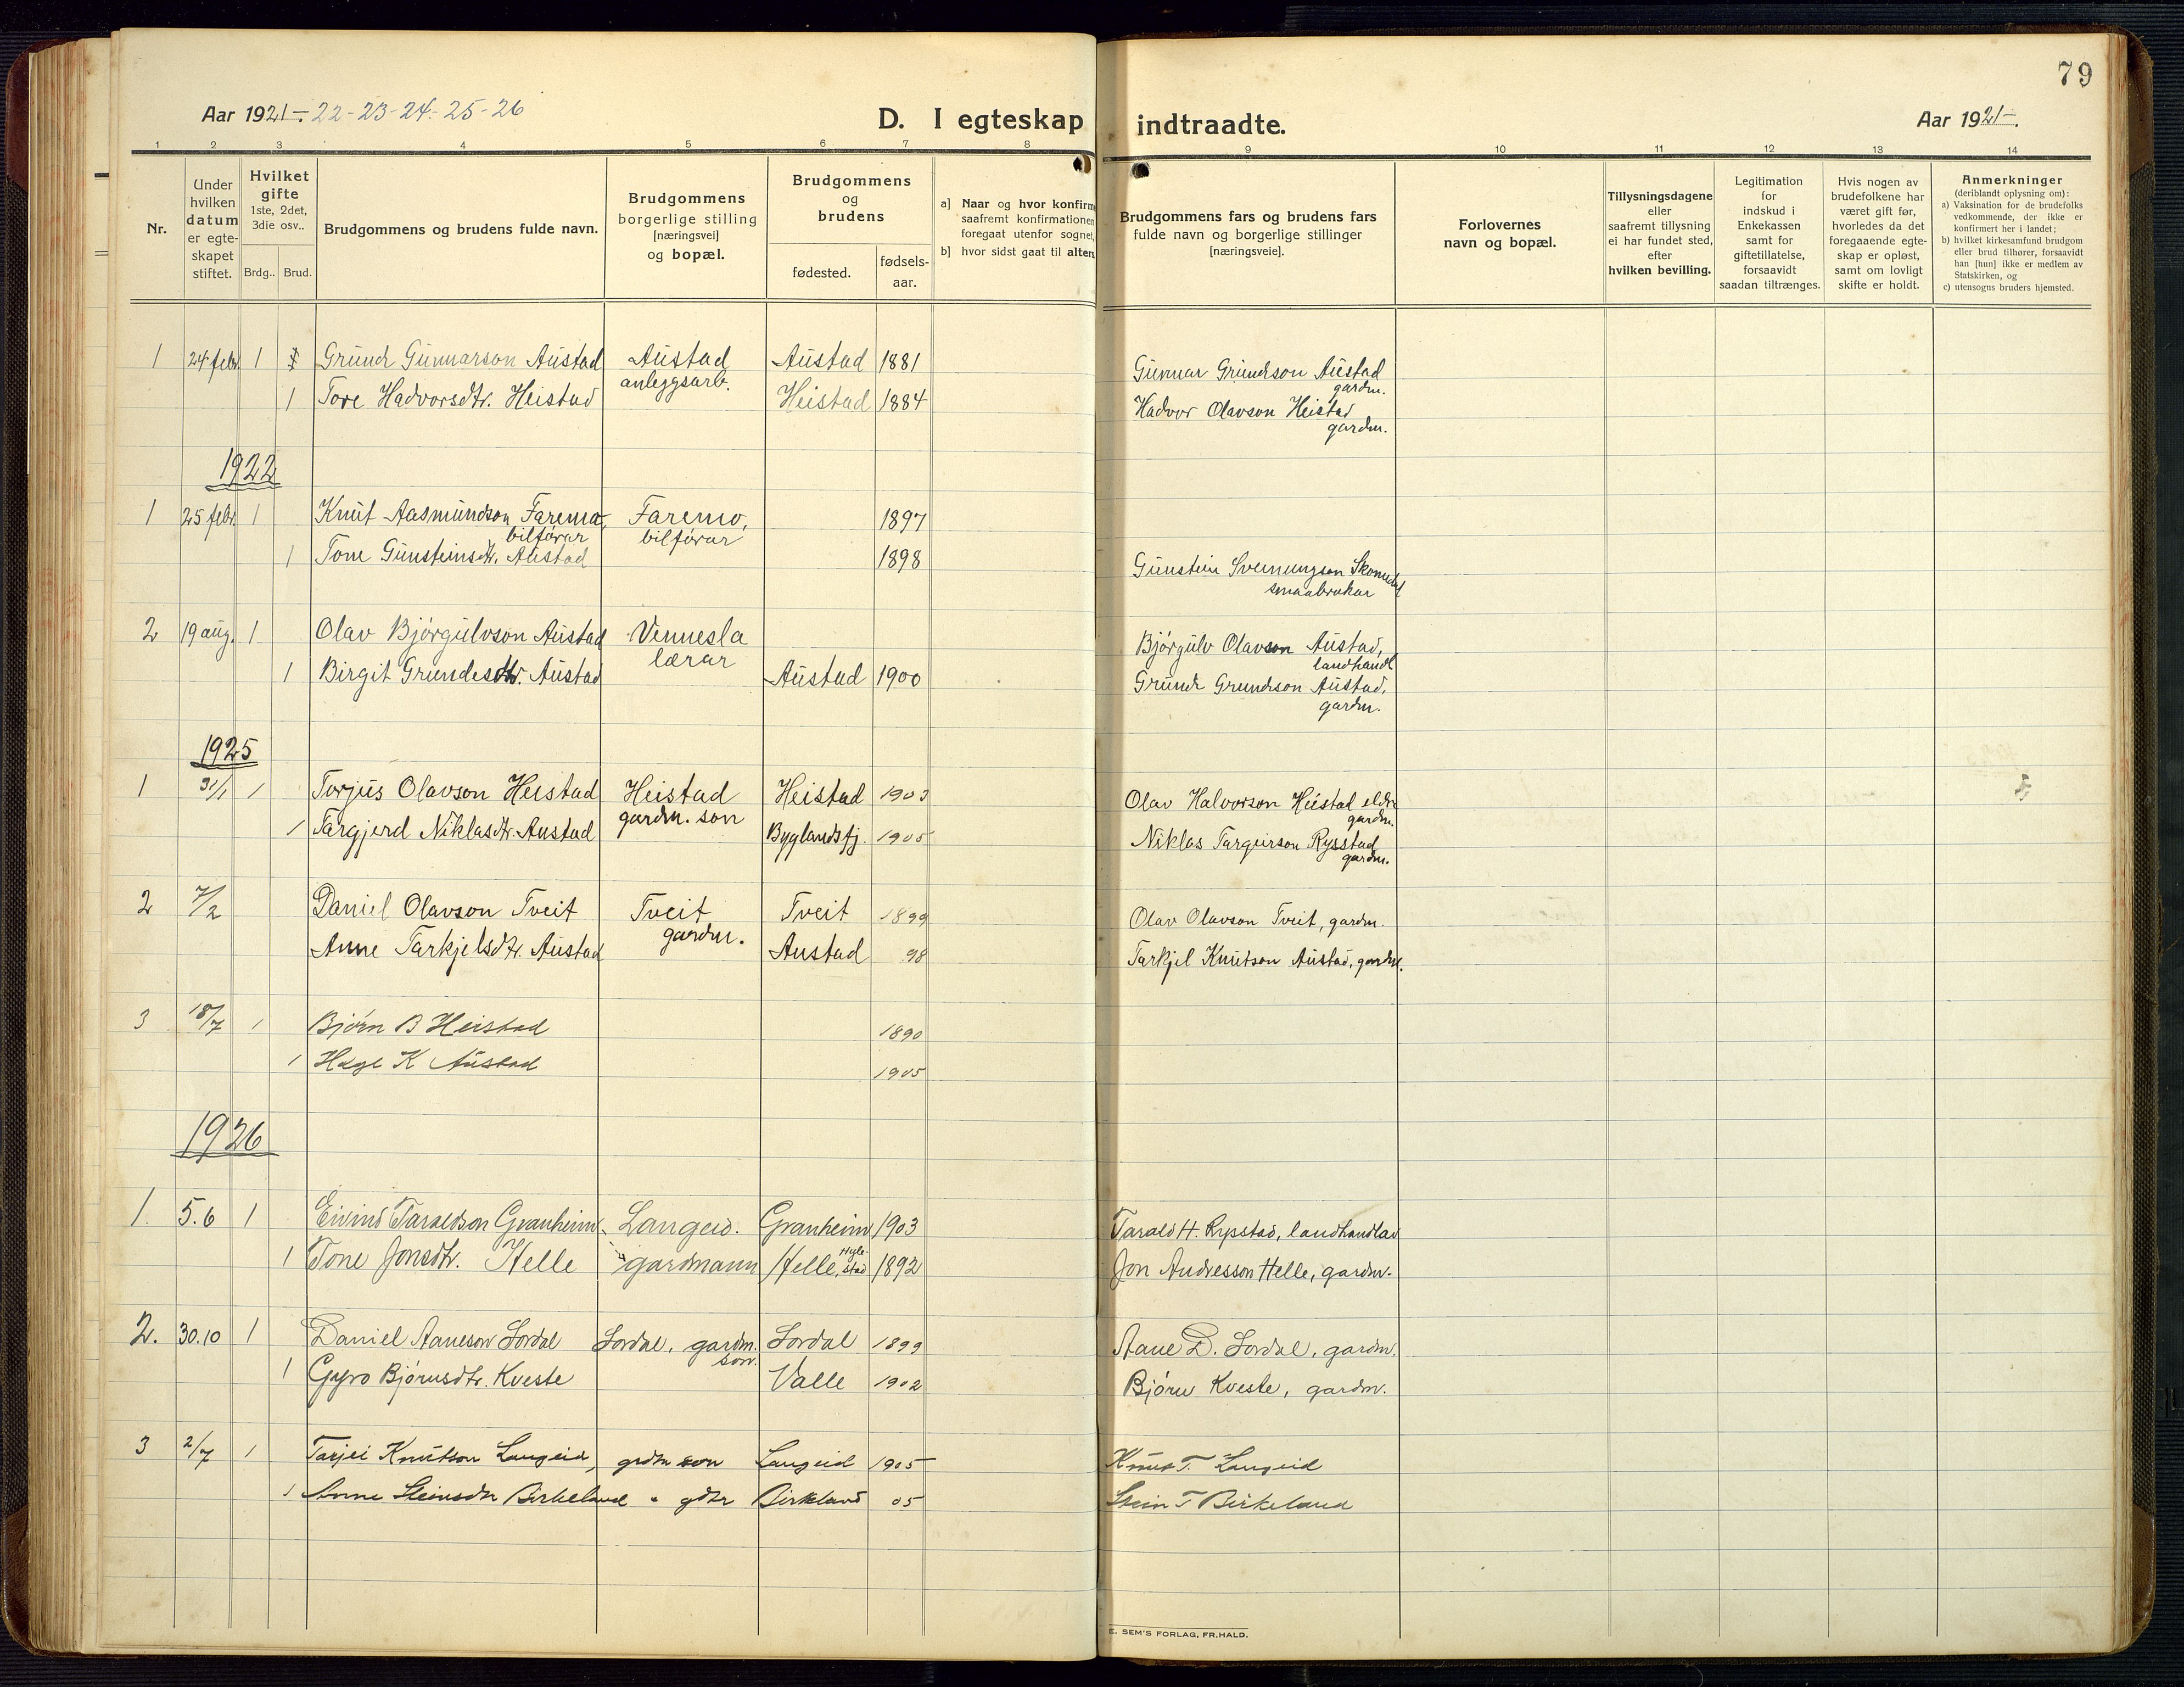 79
Aar 1921-. 22-23-24-25-26
D. I egteskap indtraadte.
Aar 1921-.
1 2 3 4 5 6 7 8 9 10 11 12 13 14
Nr.
Under
hvilken
datum
er egte-
skapet
stiftet.
Hvilket
gifte
1ste, 2det,
3die osv..
Brdg.. Brud.
Brudgommens og brudens fulde navn.
Brudgommens
borgerlige stilling
[næringsvei]
og bopæl.
Brudgommens
og
brudens
fødested.
fødsels-
aar.
a] Naar og hvor konfirm
saafremt konfirmationen
foregaat utenfor sognet,
b] hvor sidst gaat til alters
Brudgommens fars og brudens fars
fulde navn og borgerlige stillinger
[næringsveie].
Forlovernes
navn og bopæl.
Tillysningsdagene
eller
saafremt tillysning
ei har fundet sted,
efter
hvilken bevilling.
Legitimation
for
indskud i
Enkekassen
samt for
giftetillatelse,
forsaavidt
saadan tiltrænges.
Hvis nogen av
brudefolkene har
været gift før,
hvorledes da det
foregaaende egte-
skap er opløst,
samt om lovligt
skifte er holdt.
Anmerkninger
(deriblandt oplysning om):
a) Vaksination for de brudefolks
vedkommende, der ikke er
konfirmert her i landet;
b) hvilket kirkesamfund brudgom
eller brud tilhører, forsaavidt
han [hun] ikke er medlem av
Statskirken, og
c) utensogns bruders hjemsted.
1 24 febr. 1 Grunde Gunnarson Austad Austad Austad 1881 Gunnar Grundeson Austad
anleggsarb. gardm.
1 Tore Hadvorsdtr. Heistad Heistad 1884 Hadvor Olavson Heistad
gardm.
1922
1 25 febr. 1 Knut Aasmundson Faremo, Faremo, 1897
bilförar bilförar
1 Tone Gunsteinsdtr. Austad 1898 Gunstein Sveinungson Skomedal
smaabrukar
2 19 aug. 1 Olav Bjørgulvson Austad Vennesla Bjørgulv Olavson Austad,
lærar landhandl
1 Birgit Grundesdtr. Austad Austad 1900 Grunde Grundeson Austad,
gardm.
1925
1 31/1 1 Torjus Olavson Heistad Heistad Heistad 1903 Olav Halvorson Heistad eldre
gardm. son gardm.
1 Targjerd Niklasdtr. Austad Byglandsfj. 1905 Niklas Targeirson Rysstad
gardm.
2 7/2 Daniel Olavson Tveit Tveit Tveit 1899 Olav Olavson Tveit, gardm.
gardm.
Anne Tarkjelsdtr. Austad Austad 98 Tarkjel Knutson Austad, gardm.
3 18/7 1 Bjørn B Heistad 1890
1 Hæge K Austad 1905
1926
1. 5.6 1 Eivind Taraldson Granheim Langeid. Granheim 1903 Tarald H. Rysstad, landhandlar
1 Tone Jonsdtr. Helle gardmann Helle, Hyle-
stad 1892 Jon Andresson Helle, gardm.
2. 30.10 1 Daniel Aaneson Lordal Lordal, gardm. Lordal 1899 Aane D. Lordal, gardm.
son.
1 Gyro Bjørnsdtr. Kveste Valle 1902 Bjørn Kveste, gardm.
3 2/7 1 Tarjei Knutson Langeid, grdm son Langeid 1905 Knut T. Langeid
1 Anne Steinsdtr Birkeland " gdtr Birkland 05 Stein T Birkeland
E. SEM'S FORLAG, FR.HALD.